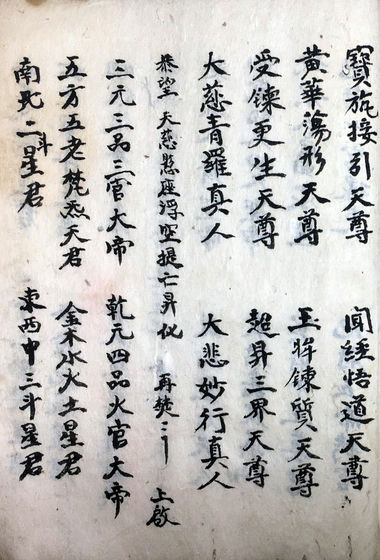 寶旛接引天尊 聞經悟道天尊
黃華蕩形天尊 玉眸鍊質天尊
受鍊更生天尊 超昇三界天尊
大慈青羅真人 大悲妙行真人
恭望 天慈惠座浮空提亡昇化 再焚 上啟
三元三品三官大帝 乾元四品火官大帝
五方五老梵炁天君 金木水火土星君
南北二斗星君 東西中三斗星君